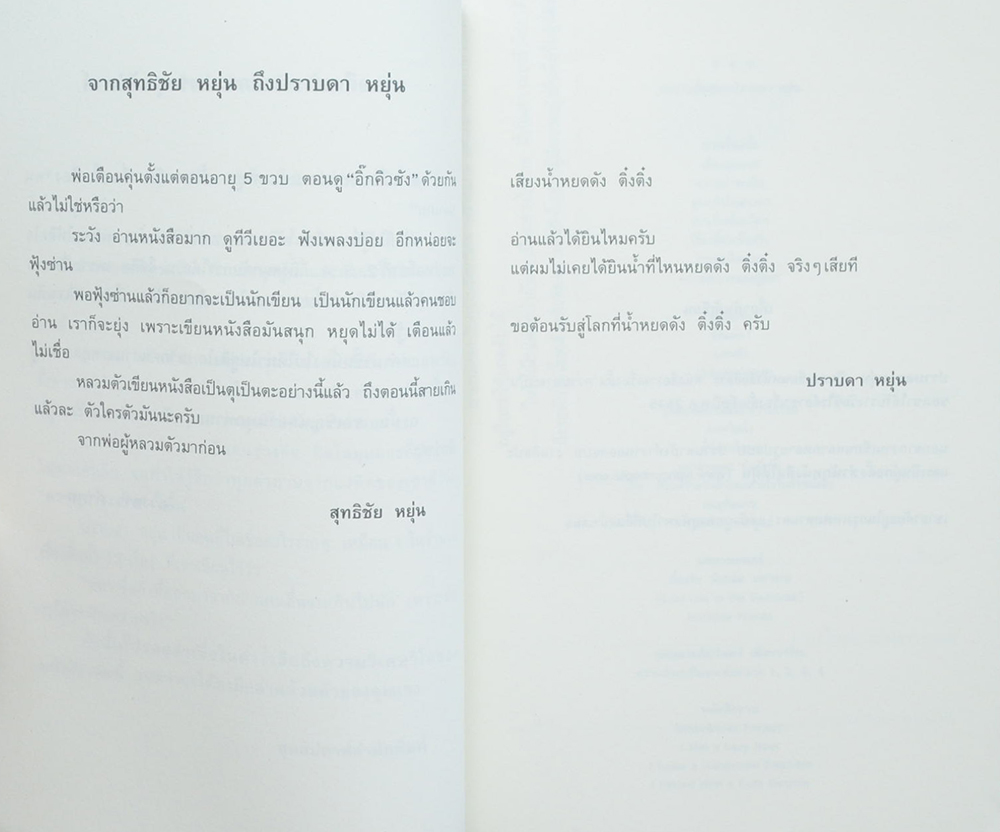 จากสุทธิชัย หยุ่น ถึงปราบดา หยุ่น
พ่อเตือนคุ่นตั้งแต่ตอนอายุ 5 ขวบ ตอนดู “อิ๊กคิวซัง” ด้วยกัน
แล้วไม่ใช่หรือว่า
ระวัง อ่านหนังสือมาก ดูทีวีเยอะ ฟังเพลงบ่อย อีกหน่อยจะ
ฟุ้งซ่าน
พอฟุ้งซ่านแล้วก็อยากจะเป็นนักเขียน เป็นนักเขียนแล้วคนชอบ
อ่าน เราก็จะยุ่ง เพราะเขียนหนังสือมันสนุก หยุดไม่ได้ เตือนแล้ว
ไม่เชื่อ
หลวมตัวเขียนหนังสือเป็นตุเป็นตะอย่างนี้แล้ว ถึงตอนนี้สายเกิน
แล้วละ ตัวใครตัวมันนะครับ
จากพ่อผู้หลวมตัวมาก่อน
สุทธิชัย หยุ่น
เสียงน้ำหยดดัง ติ๋งติ๋ง
อ่านแล้วได้ยินไหมครับ
แต่ผมไม่เคยได้ยินน้ำที่ไหนหยดดัง ติ๋งติ๋ง จริงๆ เสียที
ขอต้อนรับสู่โลกที่น้ำหยดดัง ติ๋งติ๋ง ครับ
ปราบดา หยุ่น